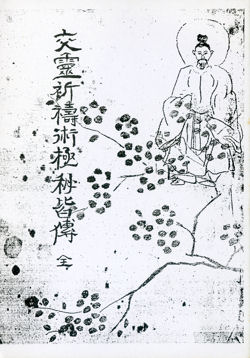 交靈祈禱術極秘皆傳 全